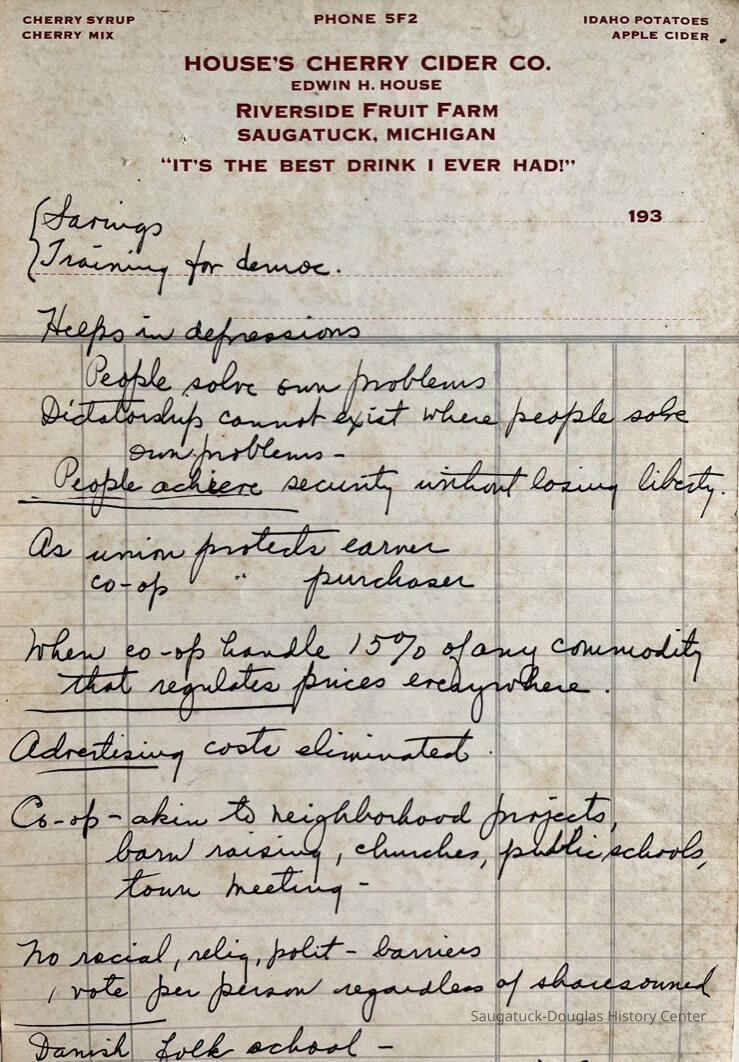 CHERRY SYRUP
CHERRY MIX
PHONE 5F2
IDAHO POTATOES
APPLE CIDER
HOUSE'S CHERRY CIDER CO.
EDWIN H. HOUSE
RIVERSIDE FRUIT FARM
SAUGATUCK, MICHIGAN
"IT'S THE BEST DRINK I EVER HAD!"
193
Savings
Training for democ.
Helps in depressions
People solve own problems
Dictatorship cannot exist where people solve
own problems -
People achieve security without losing liberty.
As union protects earner
co-op " purchaser
When co-op handle 15% of any commodity
that regulates prices everywhere.
Advertising costs eliminated.
Co-op - akin to neighborhood projects,
barn raising, churches, public schools,
town meeting -
No racial, relig, polit - barriers
1 vote per person regardless of shares owned
Saugatuck-Douglas History Center
Danish folk school -